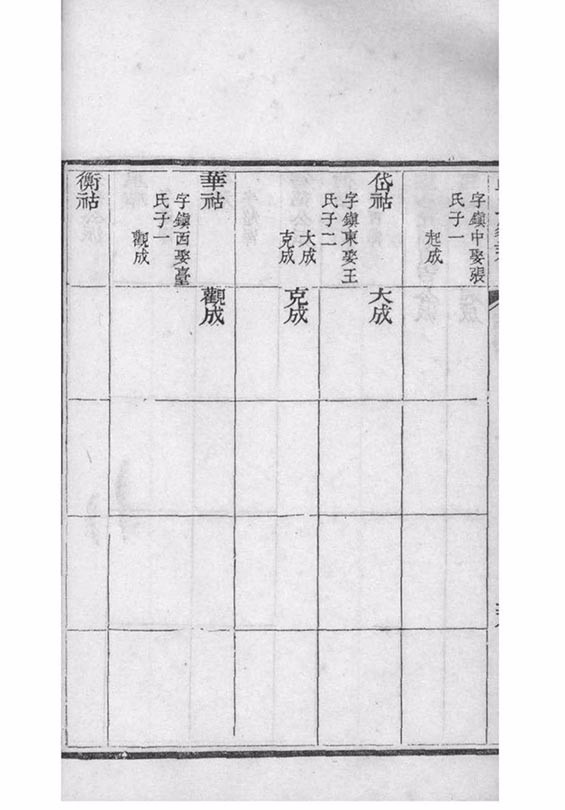 字鎮中娶張
氏子一
起成
岱祜
字鎮東娶王
氏子二
大成
克成
大成
克成
華祜
字鎮西娶臺
氏子一
觀成
觀成
衡祜